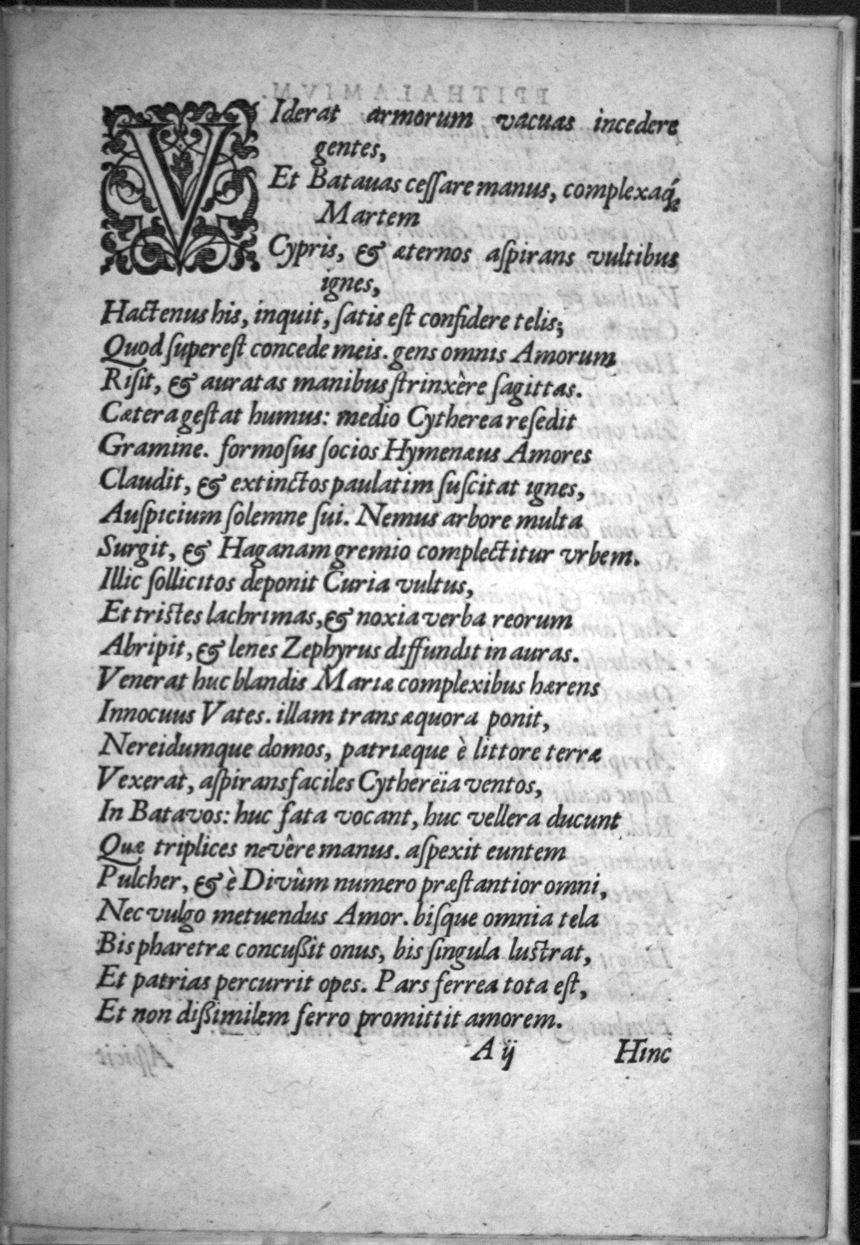 VIderat armorum vacuas incedere
gentes,
Et Batauas ceſſare manus, complexaq́;
Martem
Cypris, & æternos aſpirans vultibus
ignes,
Hactenus his, inquit, ſatis eſt confidere telis;
Quod ſupereſt concede meis. gens omnis Amorum
Riſit, & auratas manibus ſtrinxêre ſagittas.
Cætera geſtat humus: medio Cytherea reſedit
Gramine. formoſus ſocios Hymenæus Amores
Claudit, & extinctos paulatim ſuſcitat ignes,
Auſpicium ſolemne ſui. Nemus arbore multa
Surgit, & Haganam gremio complectitur vrbem.
Illic ſollicitos deponit Curia vultus,
Et triſtes lachrimas, & noxia verba reorum
Abripit, & lenes Zephyrus diffundit in auras.
Venerat huc blandis Mariæ complexibus hærens
Innocuus Vates. illam trans æquora ponit,
Nereidumque domos, patriæque è littore terræ
Vexerat, aſpirans faciles Cythereïa ventos,
In Batavos: huc fata vocant, huc vellera ducunt
Quæ triplices nevêre manus. aſpexit euntem
Pulcher, & è Divûm numero præſtantior omni,
Nec vulgo metuendus Amor. biſque omnia tela
Bis pharetræ concußit onus, bis ſingula luſtrat,
Et patrias percurrit opes. Pars ferrea tota eſt,
Et non dißimilem ferro promittit amorem.
A ij Hinc